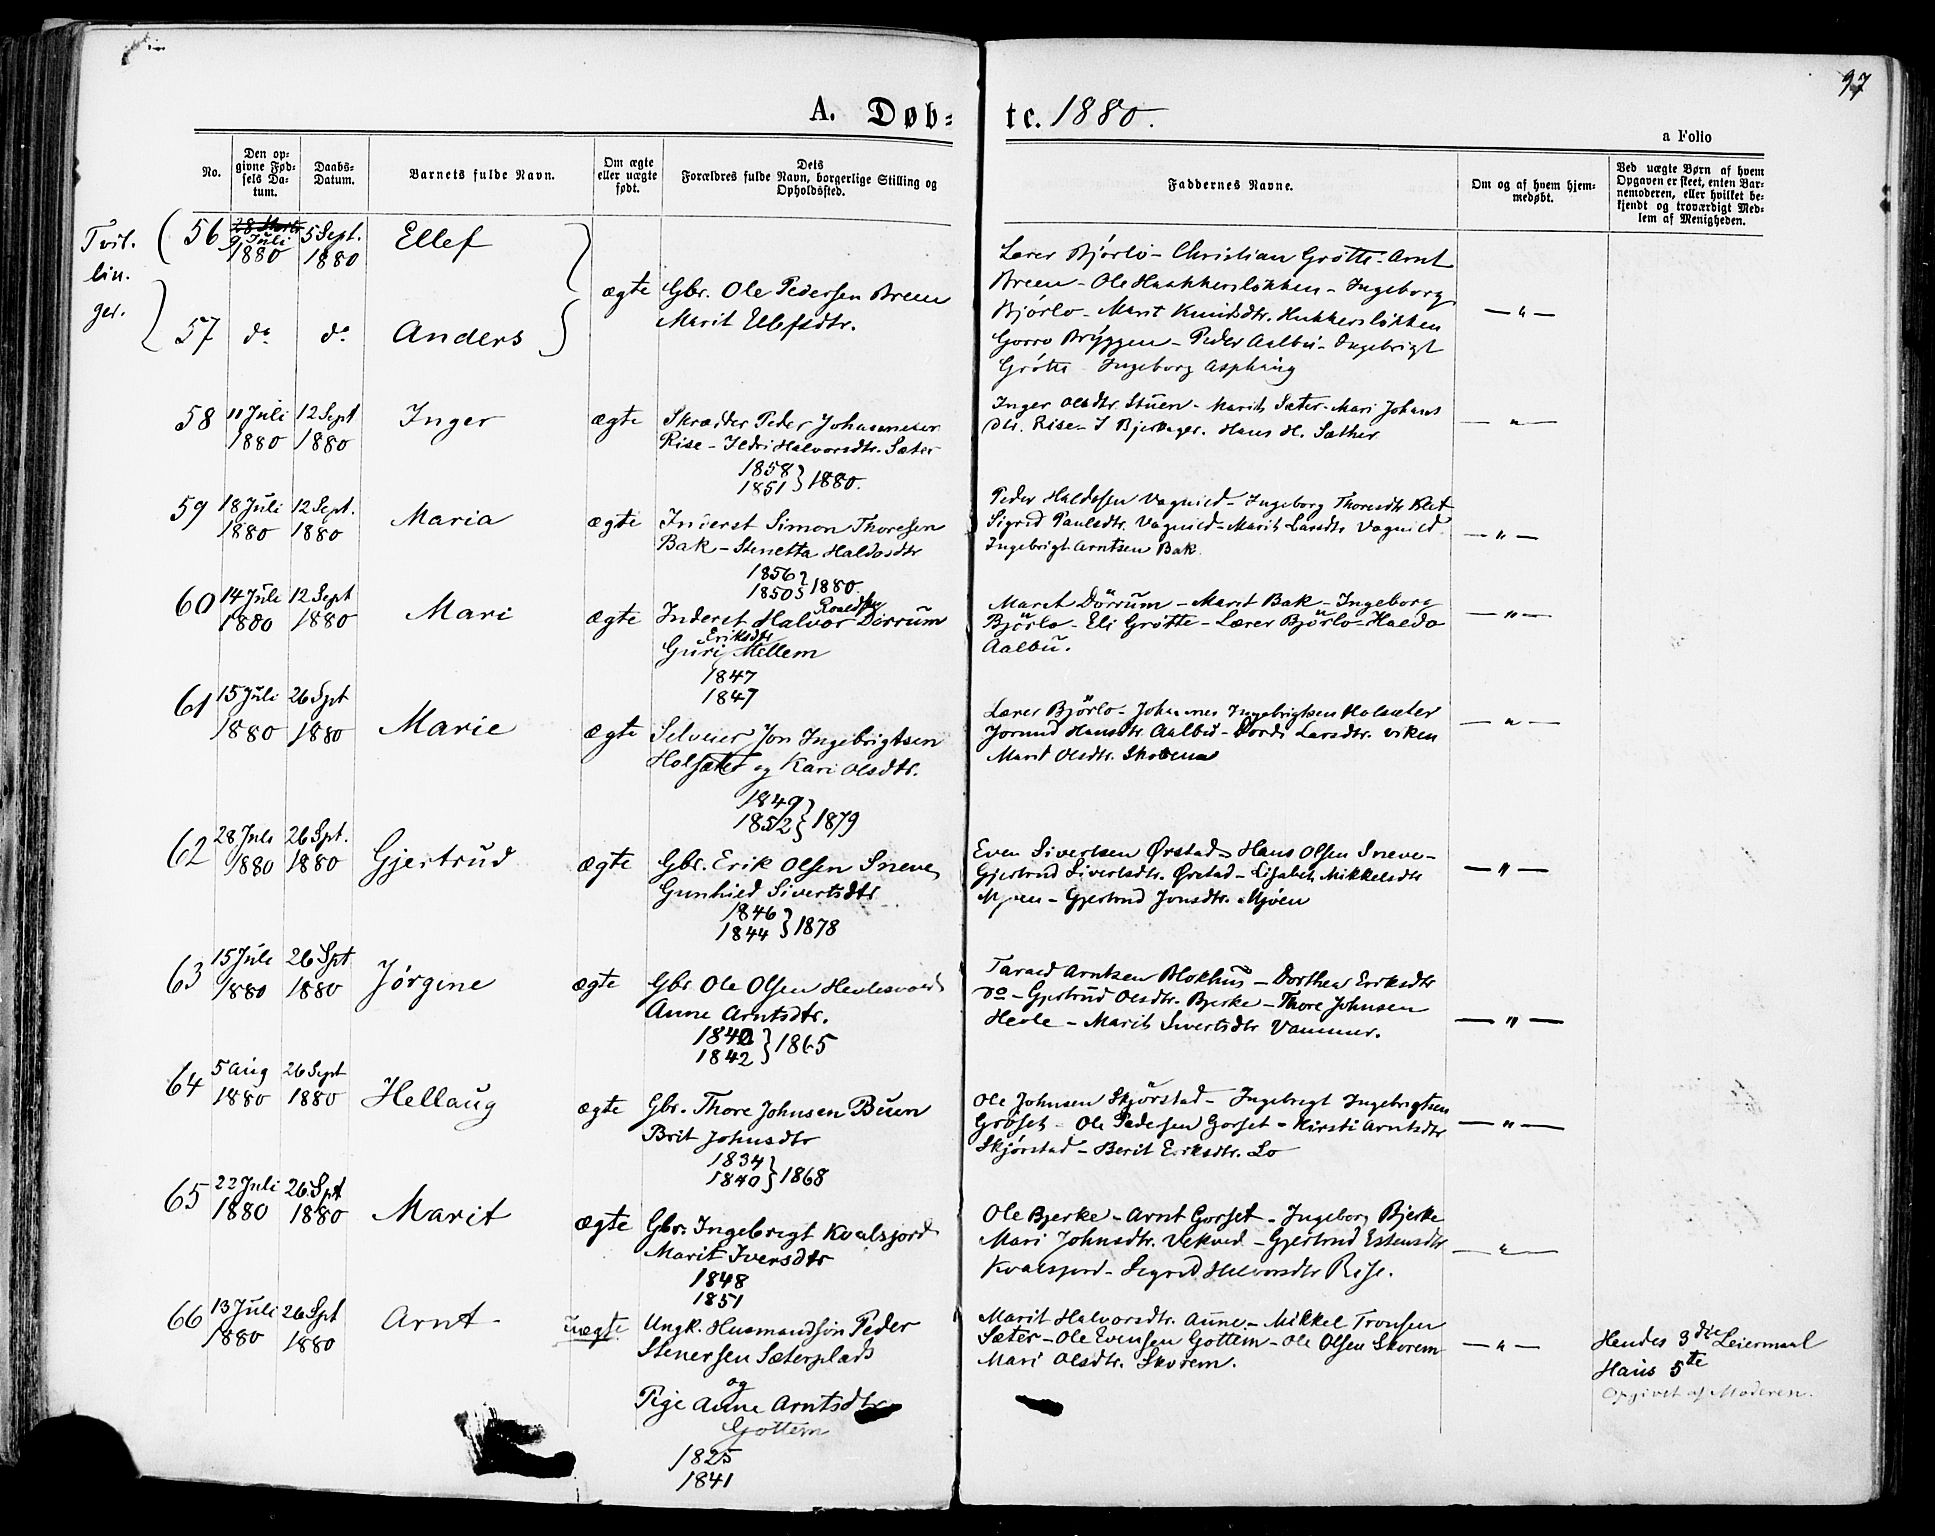 97
A. Døb- te. 1880.
a Folio
No.
Den op-
givne Fød-
sels Da-
tum.
Daabs-
Datum.
Barnets fulde Navn.
Om ægte
eller uægte
født.
Dets
Forældres fulde Navn, borgerlige Stilling og
Opholdssted.
Faddernes Navne.
Om og af hvem hjem-
medøbt.
Ved uægte Børn af hvem
Opgaven er skeet, enten Bar-
nemoderen, eller hvilket be-
kjendt og troværdigt Med-
lem af Menigheden.
Tvil-
lin-
ger.
56 9 Juli 1880 5 Sept. 1880 Ellef
57 do do Anders
ægte Gbr. Ole Pedersen Breen
Marit Ellefsdtr.
Lærer Bjórlo - Christian Grótte - Arnt
Breen - Ole Haakkersløkken - Ingeborg
Bjórlo - Marit Knudsdtr. Hukkersløkken
Gorro Bryggen - Peder Aalbu - Ingebrigt
Grótte Ingeborg Asphaug
— " —
58 11 Juli 1880 12 Sept 1880 Inger ægte
Skræder Peder Johannesen
Rise - Ildri Halvorsdtr. Sæter
1858
1851 } 1880.
Inger Olsdtr. Stuen - Marit Sæter - Mari Johans
dtr. Rise - I Bjerkager. Hans H. Sæther
— " —
59 18 Juli 1880 12 Sept. 1880 Maria ægte
Inderst Simon Thoresen
Bak - Stenetta Haldosdtr
1856
1850 } 1880.
Peder Haldosen Vagnild - Ingeborg Thoresdtr
Sigrid Paulsdtr. Vagnild - Marit Larsdtr Vagnild
Ingebrigt Arntsen Bak.
— " —
60 14 Juli 1880 12 Sept 1880 Mari ægte
Inderst Halvor Roaldsen Dörrum
Guri Eriksdtr Mellem
1847
1847
Marit Dörrum - Marit Bak - Ingeborg
Björlo - Eli Grötte - Lærer Björlo - Haldo
Aalbu.
— " —
61 15 Juli 1880 26 Spt 1880 Marie ægte
Selveier Jon Ingebrigtsen
Holsæter og Kari Olsdtr.
1849
1852 } 1879
Lærer Björlo - Johannes Ingebrigtsen Holsæter
Jorund Hansdtr. Aalbu - Dordi Larsdtr. Viken
Marit Olsdtr.
— " —
62 28 Juli 1880 26 Spt. 1880 Gjertrud ægte
Gbr. Erik Olsen Sneve,
Gunhild Sivertsdtr
1846
1844 } 1878
Even Sivertsen Ørstad - Hans Olsen Sneve -
Gjertrud Sivertsdtr. Ørstad - Lisabet Mikkelsdtr
Mjøen - Gjertrud Jonsdtr. Mjöen
— " —
63 15 Juli 1880 26 Spt 1880 Jørgine ægte
Gbr. Ole Olsen
Anne Arntsdtr.
1840
1842 } 1865
Tarald Arntsen Blokhus - Dorthea Eriksdtr
do - Gjertrud Olsdtr. Bjerke - Thore Johnsen
Hevle - Marit Sivertsdtr Vammer.
— " —
64 5 Aug 1880 26 Sept 1880 Hellaug ægte
Gbr. Thore Johnsen Buen
Brit Johnsdtr
1834
1840 } 1868
Ole Johnsen Skjörstad - Ingebrigt Ingebrigtsen
Gröset - Ole Pedersen Gorset - Kirsti Arntsdtr
Skjørstad - Berit Eriksdtr. Lo
— " —
65 22 Juli 1880 26 Spt 1880 Marit ægte
Gbr. Ingebrigt Kvalsjord
Marit Iversdtr
1848
1851
Ole Bjerke - Arnt Gorset - Ingeborg Bjerke
Mari Johnsdtr. Vekved - Gjertrud Estensdtr
Kvalsjord - Sigrid Halvorsdtr Rise.
— " —
66 13 Juli 1880 26 Spt 1880 Arnt - Uægte.
Ungk. Husmandsøn Peder
Stenersen Sæterplads
og
Pige Anne Arntsdtr
Gottem
1825
1841
Marit Halvorsdtr. Aune - Mikkel Tronsen
Sæter - Ole Evensen Gottem - Ole Olsen Skorem
Mari Olsdtr. Skorem.
— " —
Hendes 3die Leiermaal
Hans 5te
Opgivet af Moderen.